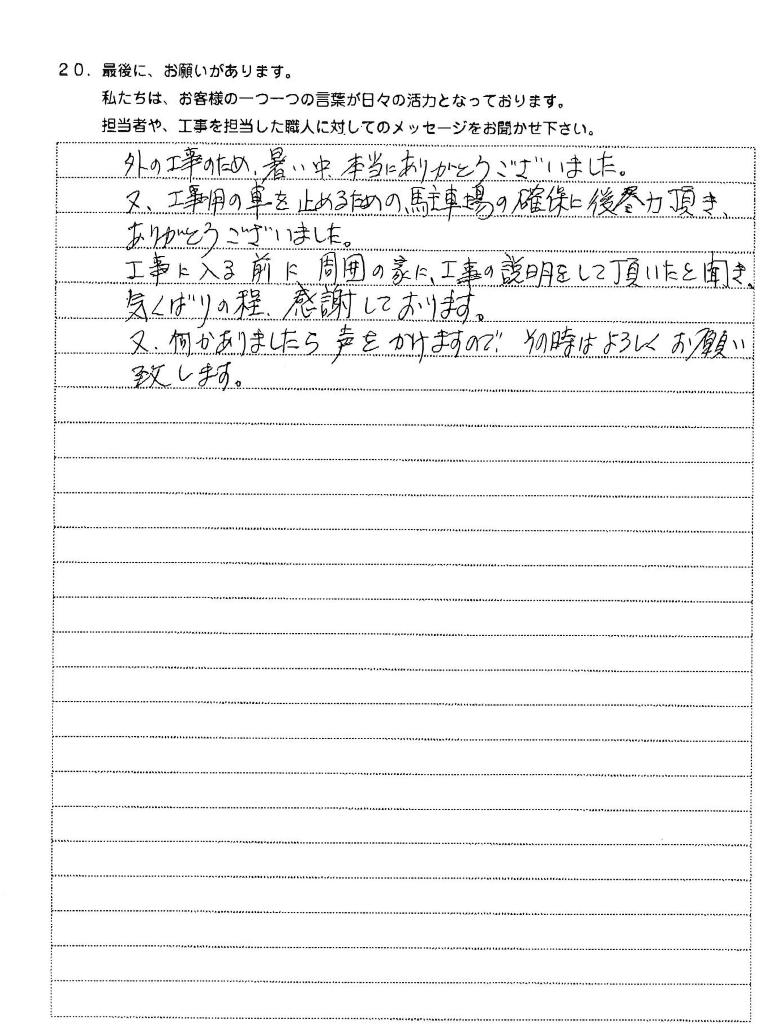 20．最後に、お願いがあります。
私たちは、お客様の一つ一つの言葉が日々の活力となっております。
担当者や、工事を担当した職人に対してのメッセージをお聞かせ下さい。
外の工事のため、暑い中、本当にありがとうございました。
又、工事用の車を止めるための、駐車場の確保に後尽力頂き、
ありがとうございました。
工事に入る前に周囲の家に、工事の説明をして頂いたと聞き、
気くばりの程、感謝しております。
又、何かありましたら声をかけますので、その時はよろしくお願い
致します。